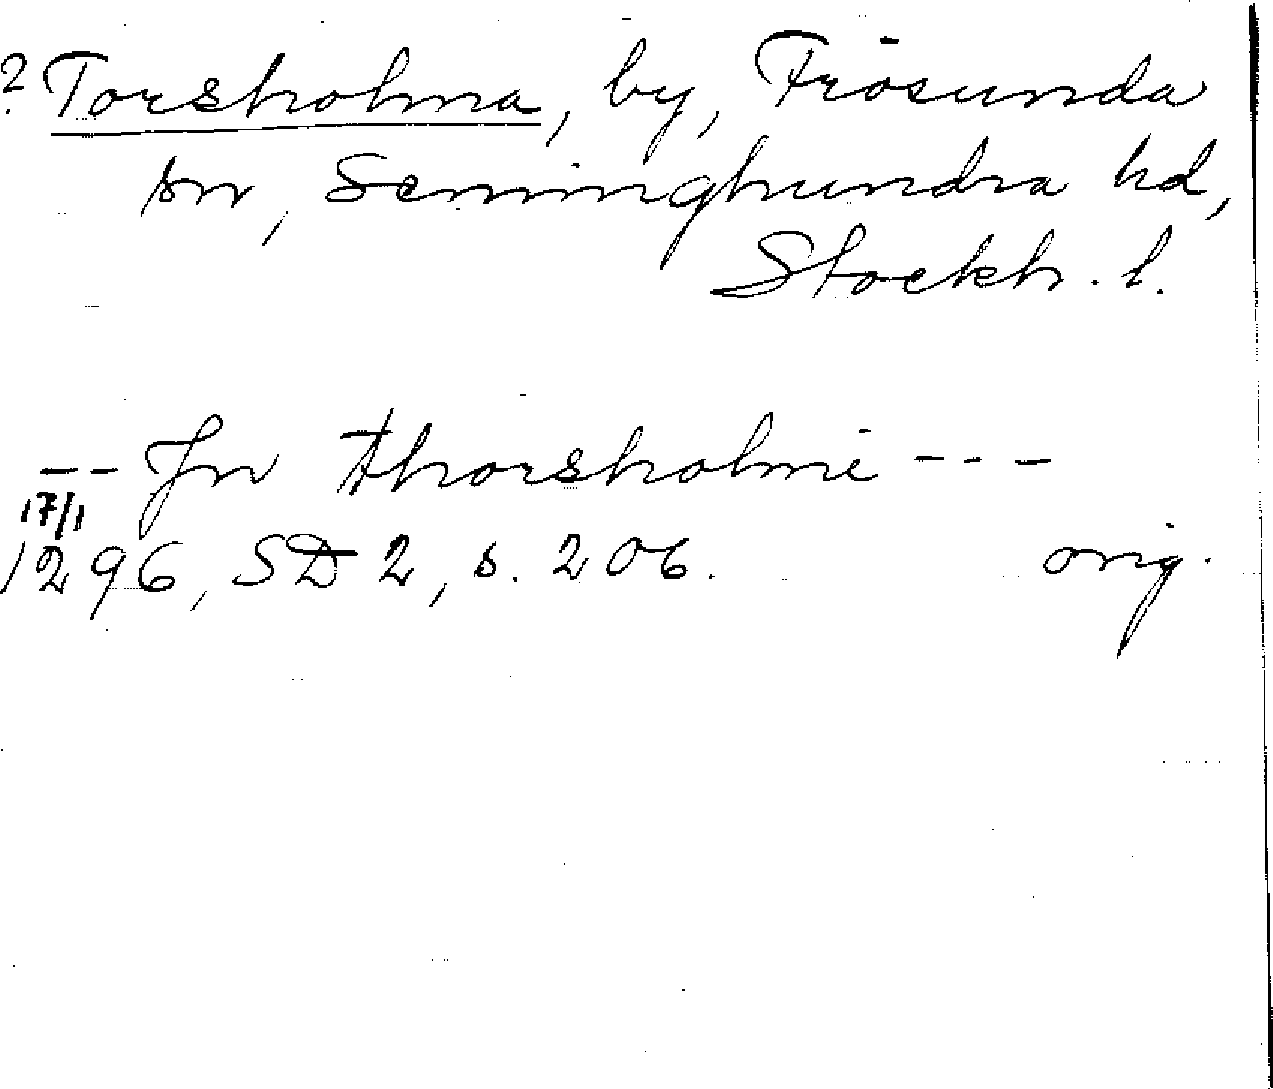 ? Torsholma, by, Frösunda
sn, Seminghundra hd,
Stockh. l.
-- Jn thorsholme ---
17/1
1296, SD 2, s. 206. orig.